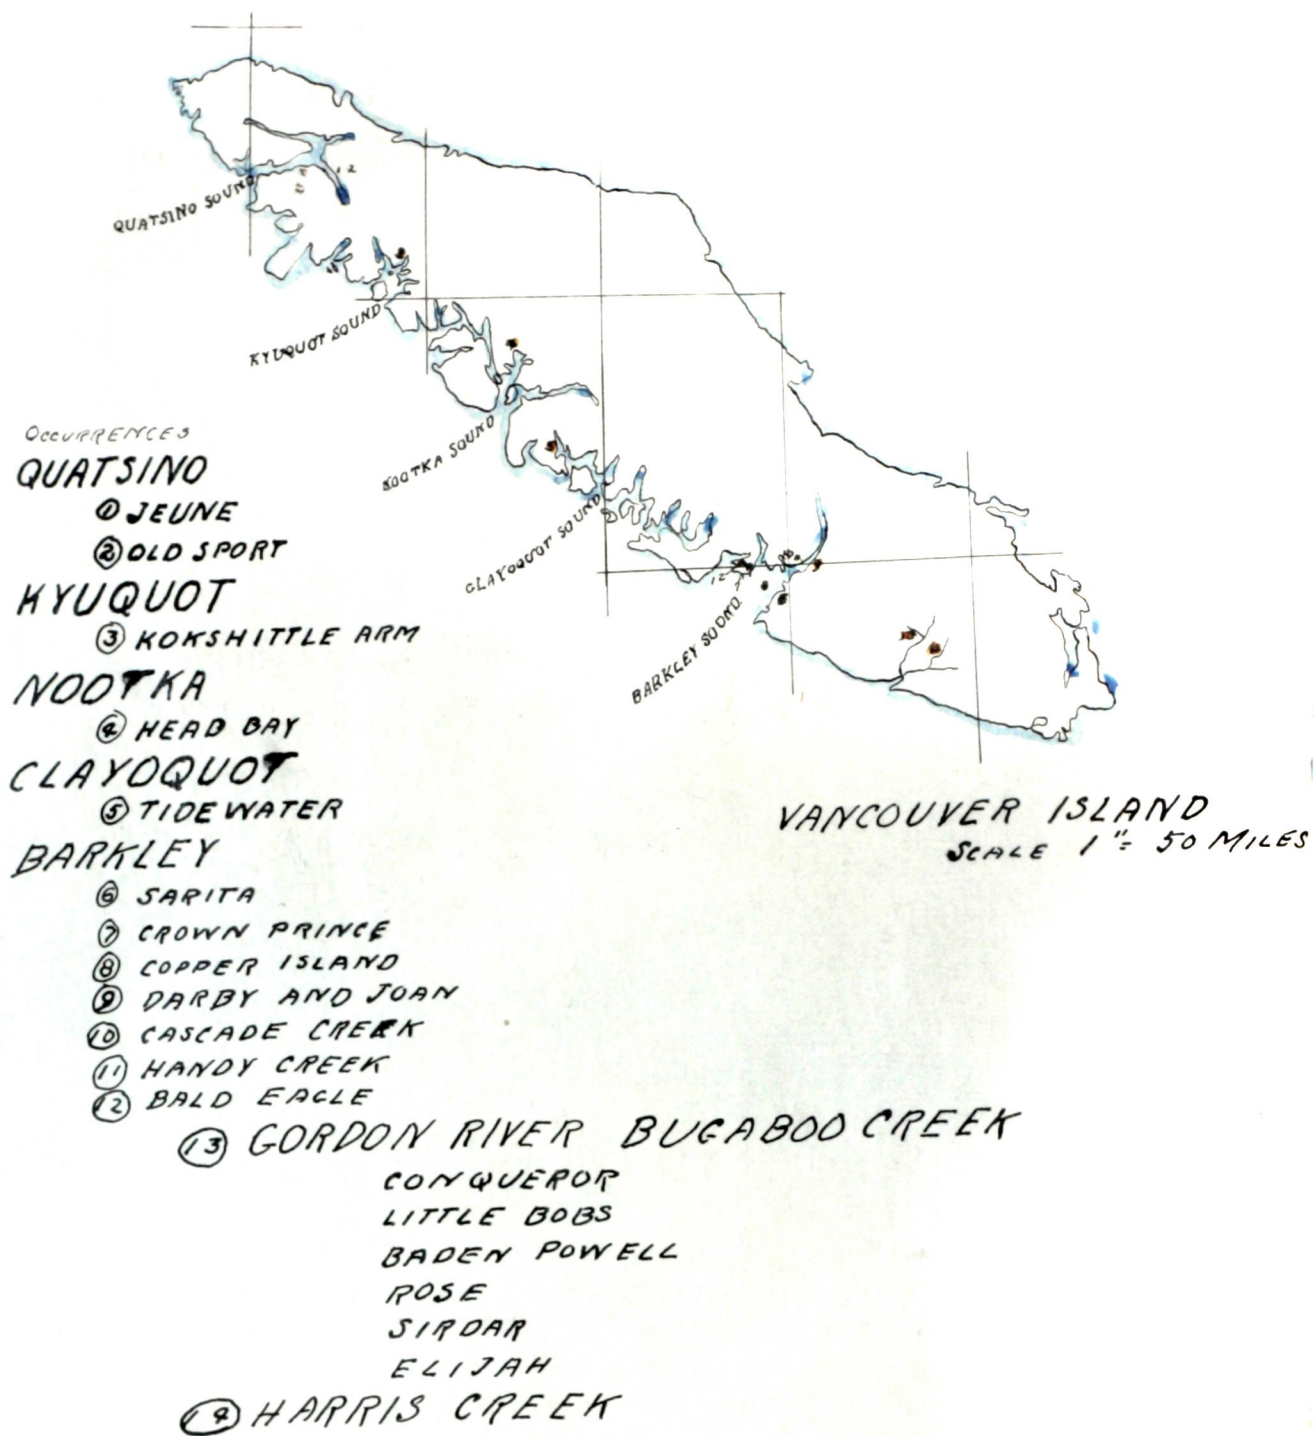 QUATSINO SOUND
KYUQUOT SOUND
NOOTKA SOUND
CLAYOQUOT SOUND
BARKLEY SOUND
OCCURRENCES
QUATSINO
① JEUNE
② OLD SPORT
KYUQUOT
③ KOKSHITTLE ARM
NOOTKA
④ HEAD BAY
CLAYOQUOT
⑤ TIDEWATER
VANCOUVER ISLAND
SCALE 1"= 50 MILES
BARKLEY
⑥ SARITA
⑦ CROWN PRINCE
⑧ COPPER ISLAND
⑨ DARBY AND JOAN
⑩ CASCADE CREEK
⑪ HANDY CREEK
⑫ BALD EAGLE
⑬ GORDON RIVER BUGABOO CREEK
CONQUEROR
LITTLE BOBS
BADEN POWELL
ROSE
SIRDAR
ELIJAH
⑭ HARRIS CREEK